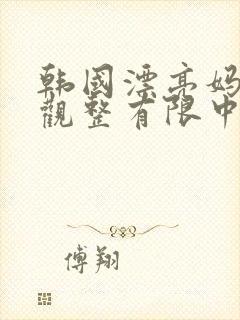 韩国漂亮妈
观整有限中
傅翔